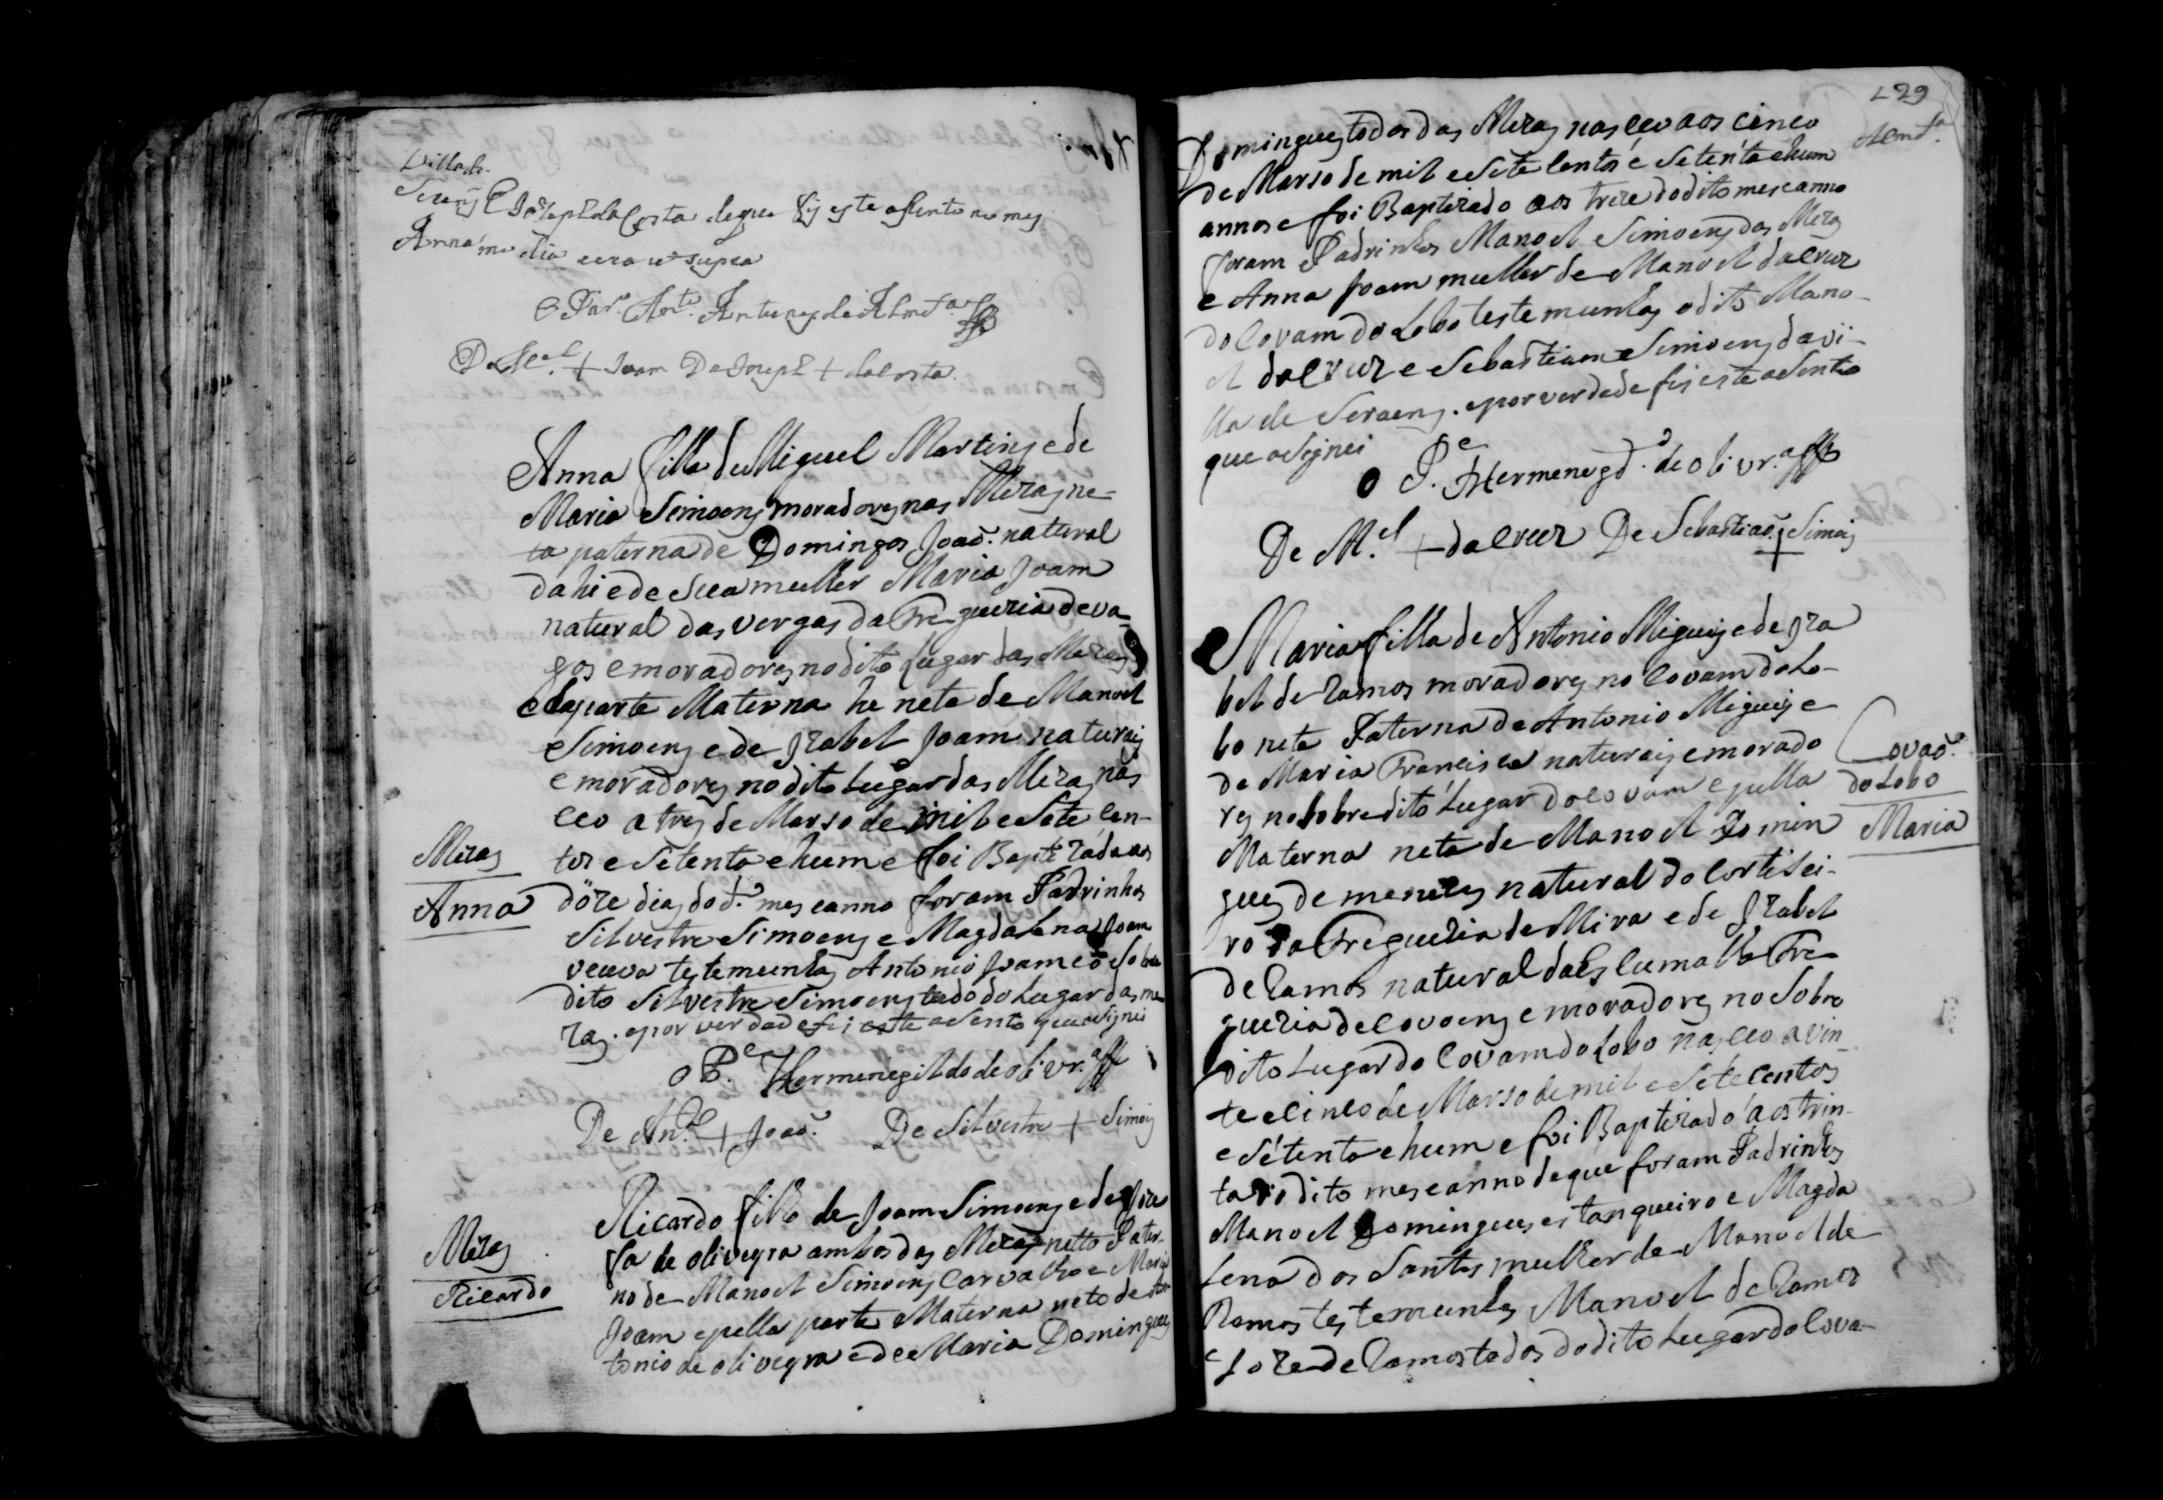 Villa de
Sereng e Joseph da Costa de que fis este asento no mes
Anna
mo dia e era ut supra
O Par. Ant.º Antunes de Almd.ª
De M.el + Joam De Joseph + da Costa
Anna filha de Miguel Martins e de
Maria Simoens moradores nas Mezas ne-
ta paterna de Domingos Joaõ natural
dahi e de sua mulher Maria Joam
natural das vergas da Freguezia de va-
gos e moradores no dito Lugar das Mezas
e da parte Materna he neta de Manoel
Simoens e de Izabel Joam naturais
e moradores no dito Lugar das Mezas nas
ceo a tres de Marso de mil e Sete cen-
Mezas
tos e setenta e hum e foi Baptizada aos
Anna
doze dias do d.º mes e anno foram Padrinhos
Silvestre Simoens e Magdalena Joam
veuva testemunhas Antonio Joam e o sobre
dito Silvestre Simoens tudo do Lugar das me
zas. e por verdade fis este asento que asignei
o P.e Hermenegildo de olivr.ª
De An.to + Joaõ De Silvestre + Simois
Ricardo filho de Joam Simoens e de Joze
Mezas
fa de oliveyra ambos das Mezas netto Pater-
Ricardo
no de Manoel Simoens Carvalho e Maria
Joam e pella parte Materna neto de An-
tonio de oliveyra e de Maria Domingues
129
Domingues todos das Mezas nasceo aos cinco
Almd.ª
de Marso de mil e Sete Centos e Setenta e hum
annos e foi Baptizado aos treze do dito mes e anno
foram Padrinhos Manoel Simoens das Mezas
e Anna Joam mulher de Manoel da cruz
do Covam do Lobo testemunhas o dito Mano-
el da Cruz e Sebastiam Simoens da vi-
lla de Seraens. e por verdade fis este asento
que asignei
o P.e Hermenegd.º de olivr.ª
De M.el + da Cruz De Sebastiaõ + Simois
Maria filha de Antonio Migueis e de Iza
bel de Ramos moradores no Covam do Lo-
bo neta Paterna de Antonio Migueis e
de Maria Francisca naturais e morado
Covaõ
res no sobredito Lugar do covam e pella
do Lobo
Materna neta de Manoel Domin
Maria
gues de menezes natural do Cortisei-
ro da Freguezia de Mira e de Izabel
de Ramos natural da Escumalha Fre
guezia de Covoens e moradores no Sobre
dito Lugar do Covam do Lobo nasceo a vin-
te e cinco de Marso de mil e Sete Centos
e Setenta e hum e foi Baptizado aos trin-
ta do dito mes e anno de que foram Padrinhos
Manoel Domingues estanqueiro e Magda
lena dos Santos mulher de Manoel de
Ramos testemunhas Manoel de Ramos
e Joze de Ramos todos do dito Lugar do Cova-